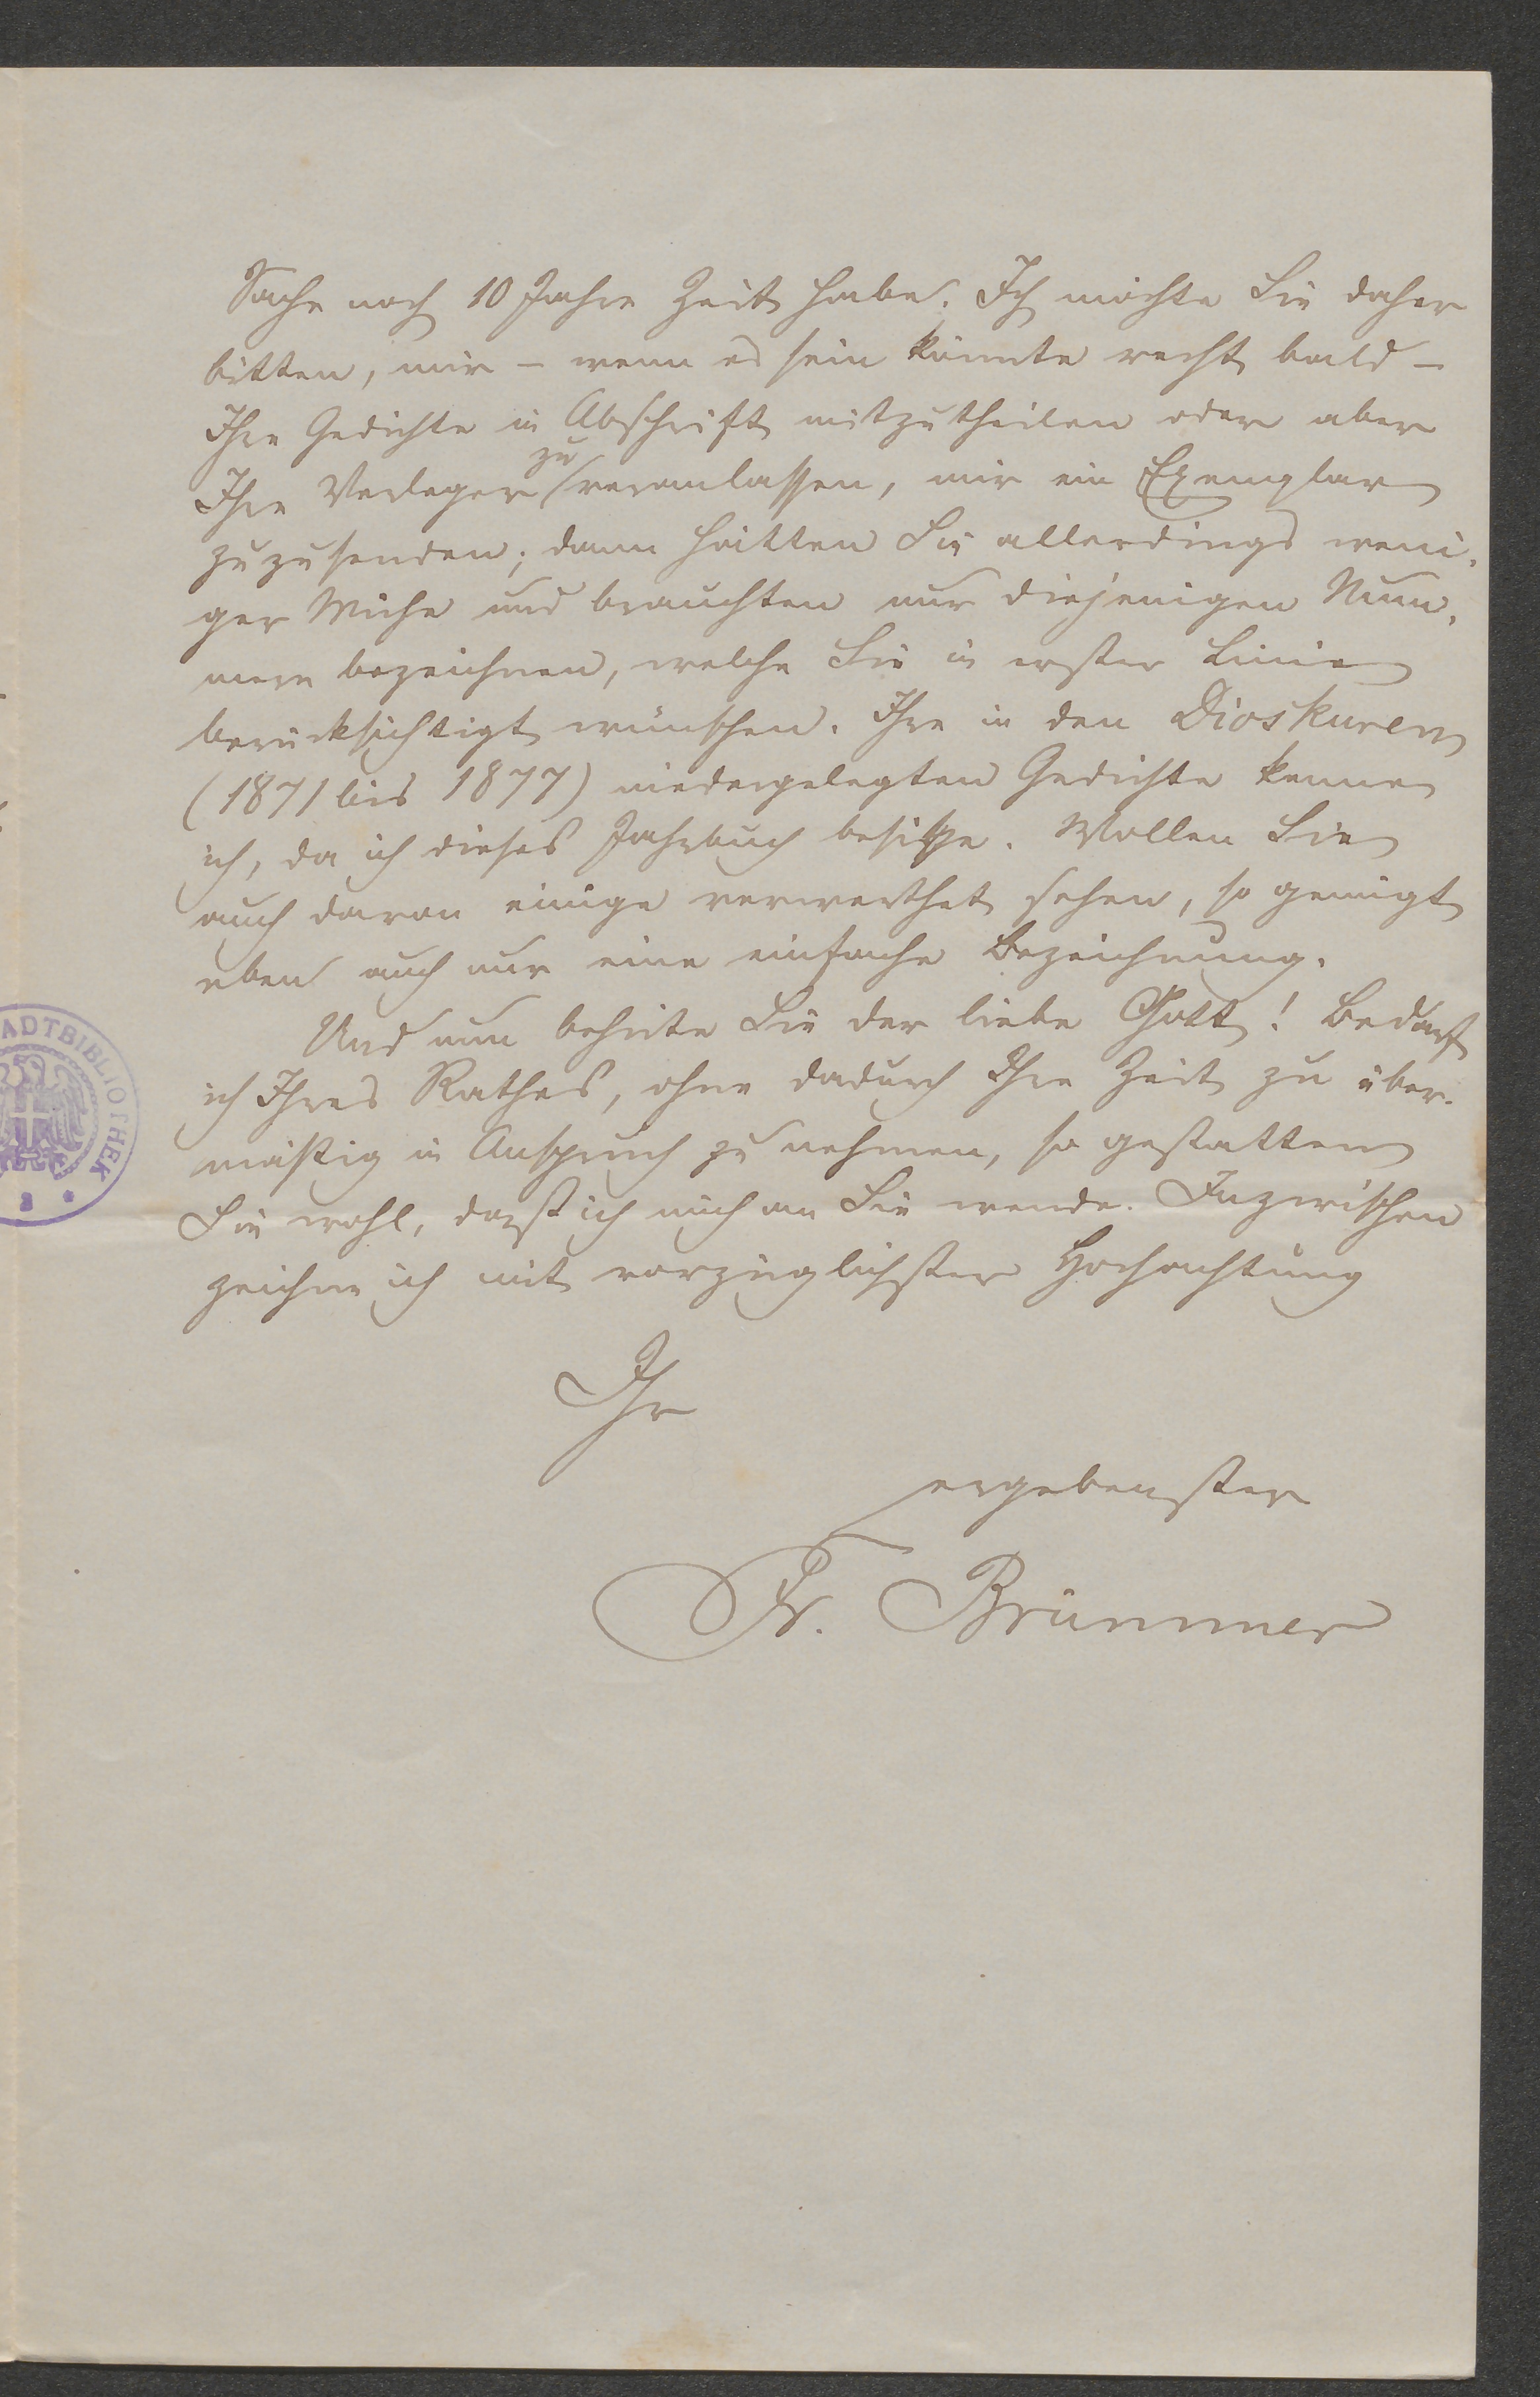 Sache noch 10 Jahre Zeit habe. Ich möchte Sie daher
bitten, mir – wenn es sein könnte recht bald –
Ihre Gedichte in Abschrift mitzutheilen oder aber
zu
Ihre Verleger veranlassen, mir ein Exemplar
zuzusenden; dann hätten Sie allerdings weni-
ger Mühe und brauchten nur diejenigen Num-
mern bezeichnen, welche Sie in erster Linie
berücksichtigt wünschen. Ihre in den Dioskuren
(1871 bis 1877) niedergelegten Gedichte kenne
ich, da ich dieses Jahrbuch besitze. Wollen Sie
auch davon einige verwerthet sehen, so genügt
eben auch nur eine einfache Bezeichnung.
Und nun behüte Sie der liebe Gott! Bedarf
ich Ihres Rathes, ohne dadurch Ihre Zeit zu über-
mäßig in Anspruch zu nehmen, so gestatten
Sie wohl, daß ich mich an Sie wende. Inzwischen
zeichne ich mit vorzüglichster Hochachtung
Ihr
ergebenster
Fr. Brümmer
ADTBIBLIOTHEK